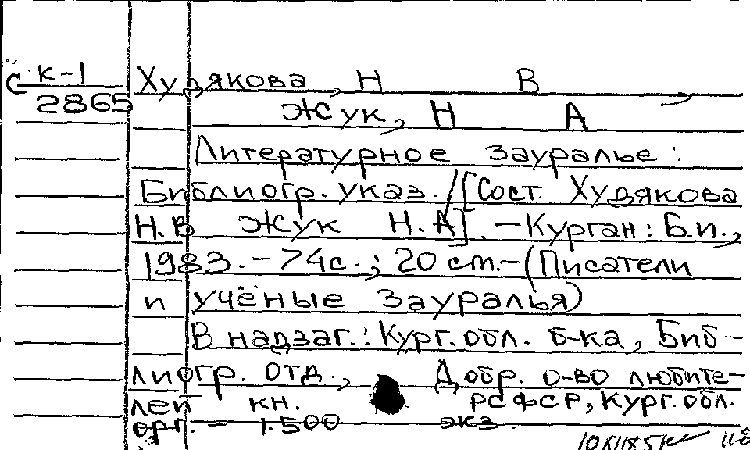 С К-1 Худякова, Н В
2865 Жук, Н А
Литературное Зауралье:
Библиогр. указ. /[Сост. Худякова
Н.В Жук Н.А]. – Курган: Б.и.,
1983. – 74с.; 20 см. – (Писатели
и учёные Зауралья)
В надзаг.: Кург. обл. б-ка, Биб-
лиогр. отд., Добр. о-во любите-
лей кн. РСФСР, Кург. обл.
орг. – 1.500 экз.